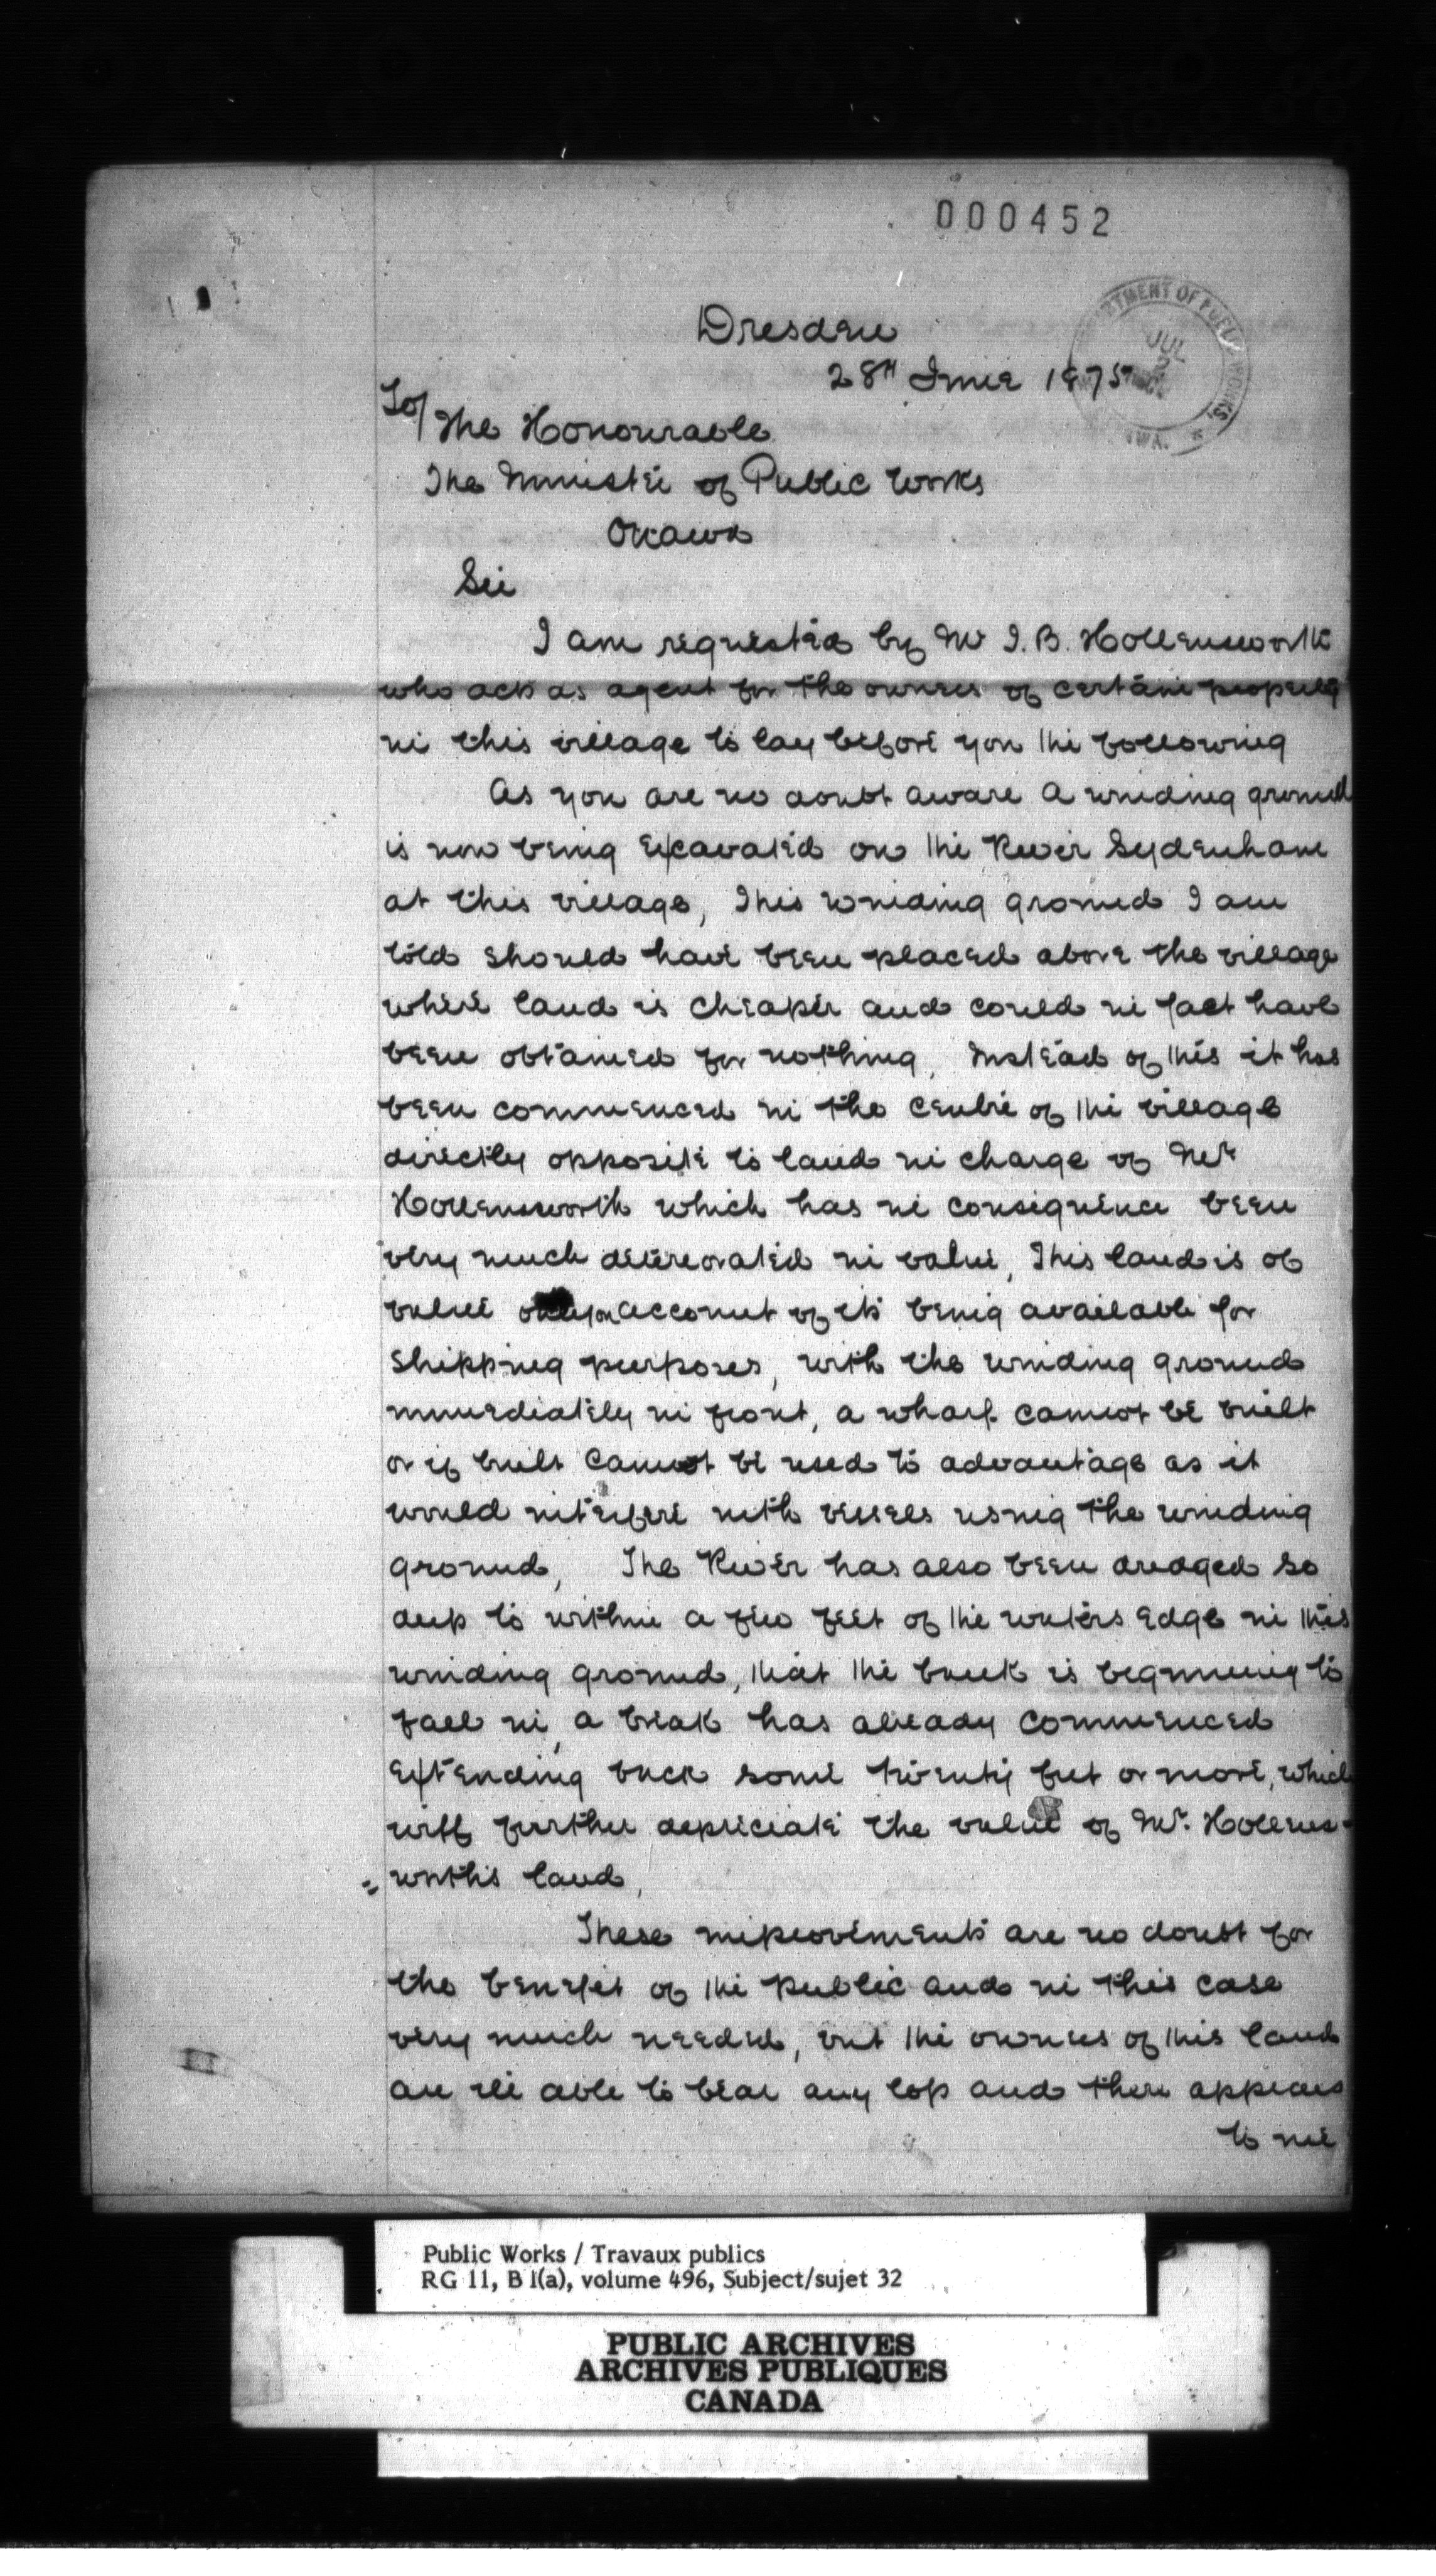 000452
DEPARTMENT OF PUBLIC WORKS.
JUL
2
Dresden
28th June 1875
To/
The Honourable
The Minister of Public Works
Ottawa
Sir
I am requested by Mr I. B. Hollensworth
who acts as agent for the owners of certain property
in this village to lay before you the following
As you are no doubt aware a winding ground
is now being excavated on the River Sydenham
at this village, This winding ground I am
told should have been placed above the village
where land is cheaper and could in fact have
been obtained for nothing, Instead of this it has
been commenced in the centre of the village
directly opposite to land in charge of Mr
Hollensworth which has in consequence been
very much deterorated in value, This land is of
value only on account of its being available for
shipping purposes, with the winding ground
immediately in front, a wharf cannot be built
or if built cannot be used to advantage as it
would interfere with vessels using the winding
ground, The River has also been dredged so
deep to within a few feet of the waters edge in this
winding ground, that the bank is beginning to
fall in, a break has already commenced
extending back some twenty feet or more, which
will further depreciate the value of Mr. Hollens-
=worths land,
These improvements are no doubt for
the benefit of the public and in this case
very much needed, but the owners of this land
are ill able to bear any loss and there appears
to me
Public Works / Travaux publics
RG 11, B 1(a), volume 496, Subject/sujet 32
PUBLIC ARCHIVES
ARCHIVES PUBLIQUES
CANADA